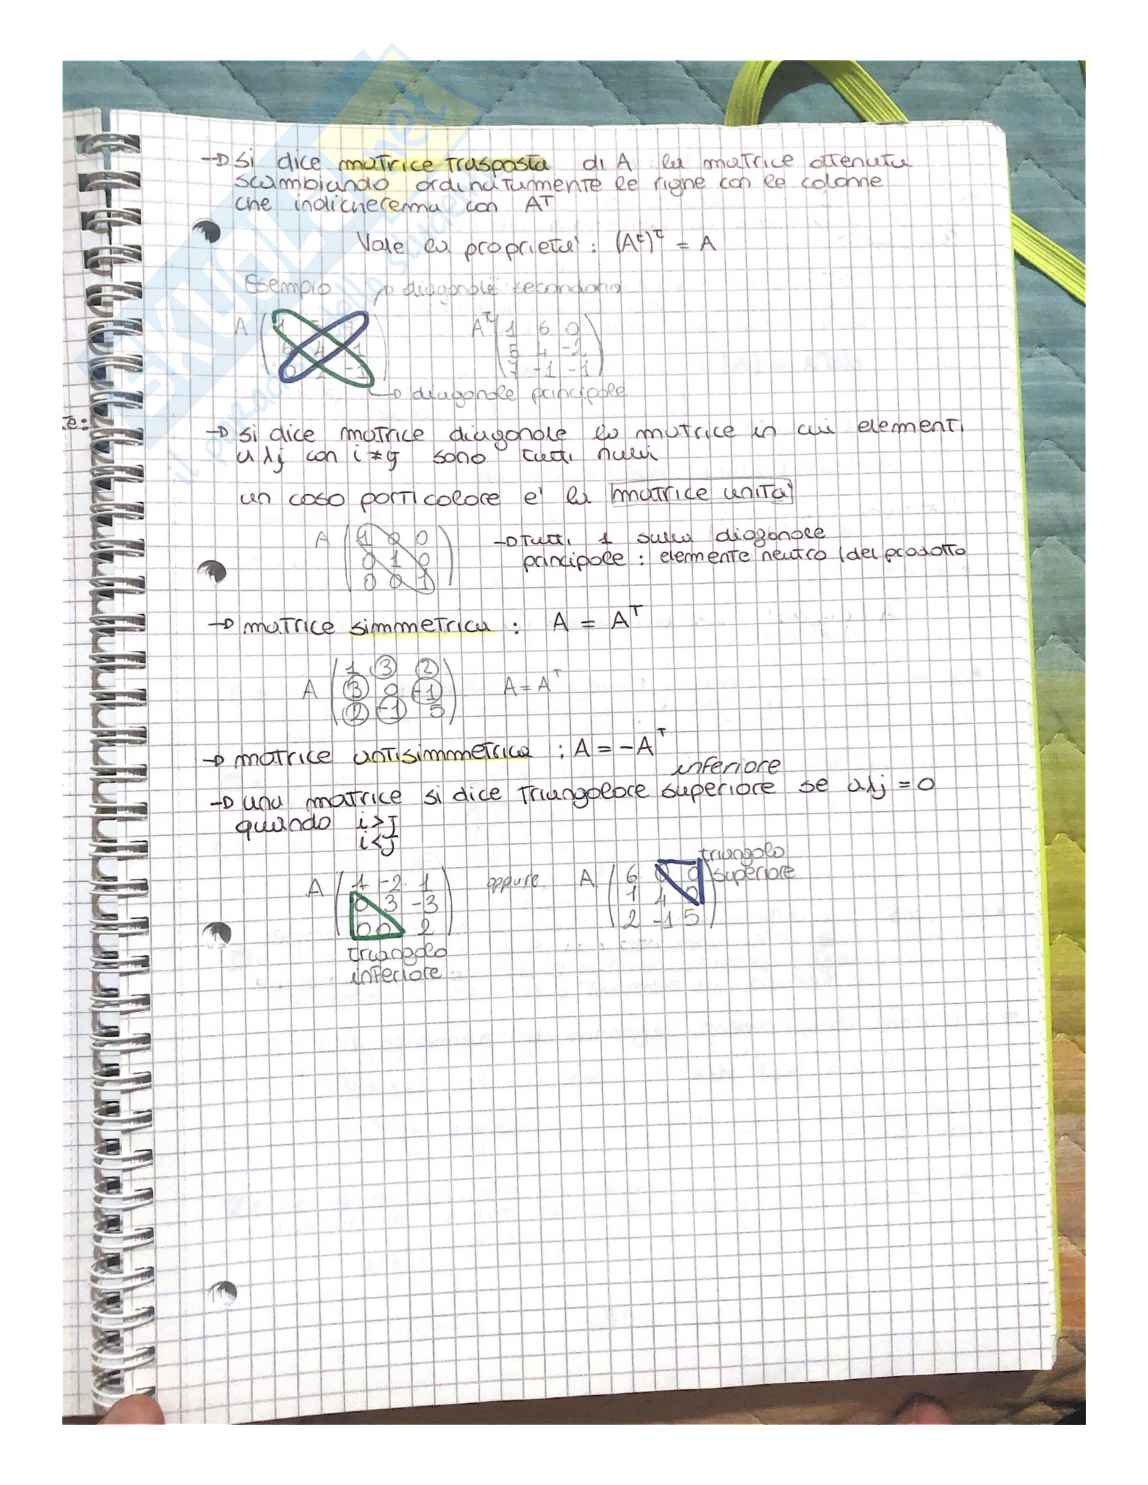 → si dice matrice trasposta di A la matrice ottenuta
scambiando ordinatamente le righe con le colonne
che indicheremma con AT
Vale la proprietà: (Aᵗ)ᵗ = A
Esempio → diagonale secondaria
A
Aᵗ 1 6 0
5 4 -1
7 -1 -1
→ diagonale principale
e:
→ si dice matrice diagonale la matrice in cui elementi
aij con i≠j sono tutti nulli
un caso particolare e' la matrice unità
A 1 0 0 → tutti 1 sulla diagonale
0 1 0 principale: elemente neutro (del prodotto
0 0 1
→ matrice simmetrica: A = Aᵀ
1 3 2
A 3 0 -1 A = Aᵀ
2 -1 5
→ matrice antisimmetrica: A = -Aᵀ
inferiore
→ una matrice si dice triangolare superiore se aij = 0
quando i>j
i<j
triangolo
A 1 -2 1 oppure A 6 0 0 superiore
0 3 -3 1 4 0
0 0 2 2 -1 5
triangolo
inferiore
SKUOLA.net